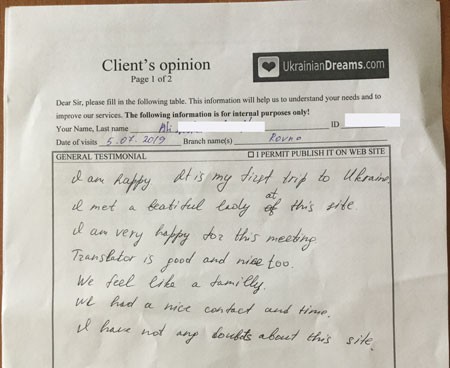 Client's opinion
Page 1 of 2
UkrainianDreams.com
Dear Sir, please fill in the following table. This information will help us to understand your needs and to
improve our services. The following information is for internal purposes only!
Your Name, Last name Ali ID
Date of visits 5.07.2019 Branch name(s) Rovno
GENERAL TESTIMONIAL ☐ I PERMIT PUBLISH IT ON WEB SITE
I am happy It is my first trip to Ukraine,
I met a beatiful lady at of this site.
I am very happy for this meeting.
Translator is good and nice too.
We feel like a familly.
We had a nice contact and time.
I have not any doubts about this site.